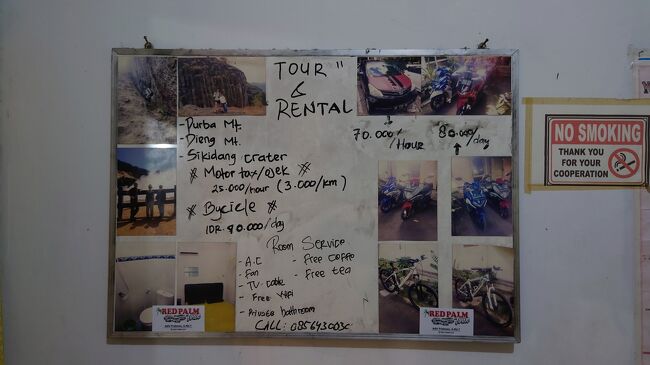 TOUR"
&
RENTAL
- Durba Mt.
- Dieng Mt.
- Sikidang crater
* Motor tax/ojek *
25.000/hour (3.000/km)
* Bycicle *
IDR. 90.000/day
70.000/Hour
80.000/day
Room Service
- A.C
- Fan
- TV. Cable
- Free Wifi
- Private bathroom
- Free Coffe
- Free tea
CALL: 085643003
RED PALM
RED PALM
NO SMOKING
THANK YOU
FOR YOUR
COOPERATION